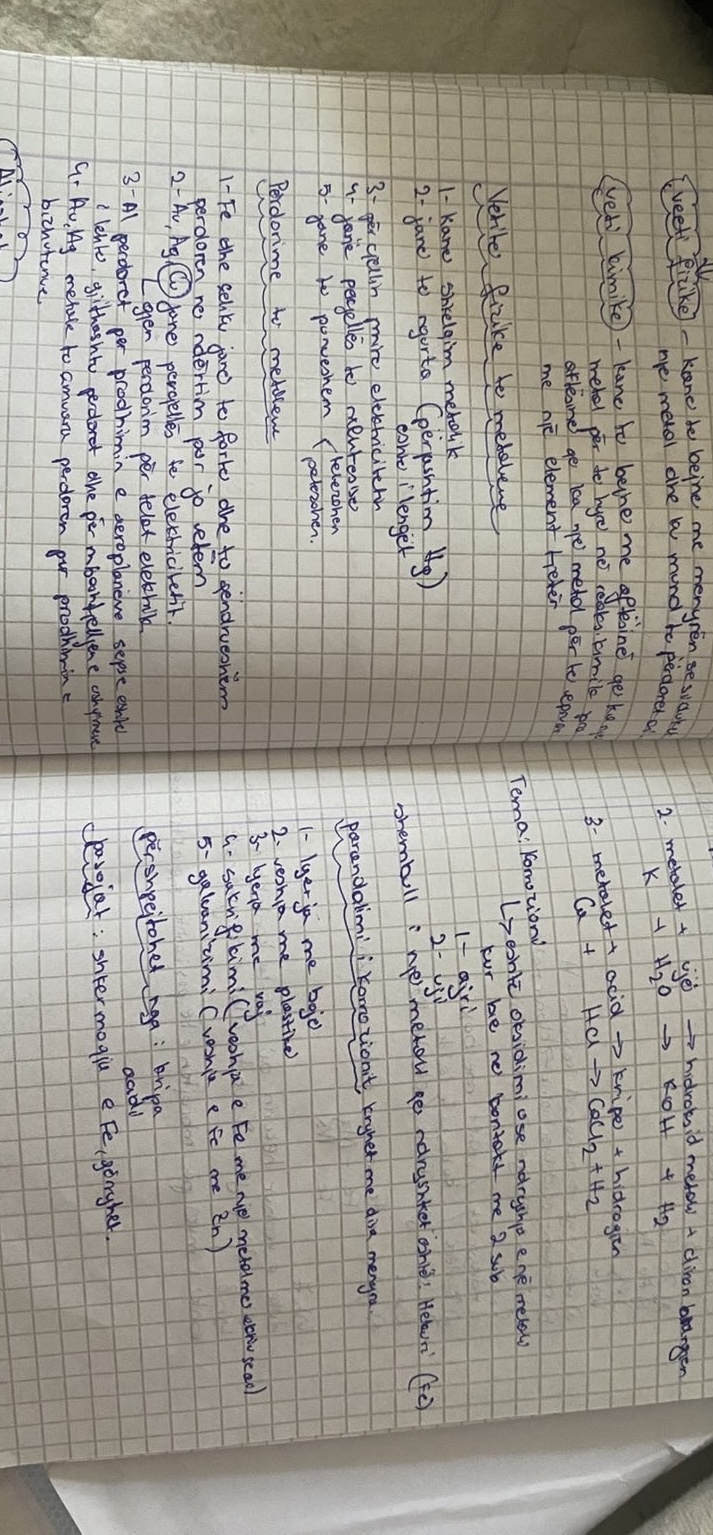 veti fizike - kane te bejne me menyrën se si duket
një metal dhe ku mund te përdoret ai
veti kimike - kane te bejne me aftësinë qe ka një
metal për te hyre në reaks. kimik pra
aftësinë qe ka një metal për te vepruar
me një element tjetër
Vetite fizike te metaleve
1- Kane shkelqim metalik
2- jane te ngurta (përjashtim Hg)
eshte i lengët
3- përcjellin mire elektricitetin
4- jane percjellës te nxehtesise
5- jane te punueshem (telezohen
petëzohen.
Përdorime te metaleve
1- Fe dhe çeliku jane te forte dhe te qëndrueshëm
perdoren ne ndërtim por jo vetem
2- Au, Ag, Cu jane perçjellës te elektricitetit.
gjen perdorim për telat elektrik
3- Al perdoret per prodhimin e aeroplanëve sepse eshte
i lehte, gjithashtu perdoret dhe për mbeshtjelljen e ushqimeve
4- Au, Ag metale te çmuara perdoren per prodhimin e
bizhuterive
2- metalet + ujë → hidroksid metali + cliron hidrogjen
K + H2O → KOH + H2
3- metalet + acid → kripe + hidrogjen
Ca + HCl → CaCl2 + H2
Tema: Korrozioni
↳ eshtë oksidimi ose ndryshja e një metali
kur bie ne kontakt me 2 sub
1- ajri
2- uji
shembull i një metali qe ndryshket është: Hekuri (Fe)
parandalimi i korrozionit kryhet me disa menyra.
1- lyerja me boje
2- veshja me plastike
3- lyerja me vaj
4- sakrifikimi (veshja e Fe me një metal me
5- galvanizimi (veshja e Fe me Zn)
përshpejtohet nga: kripa
acidi
pasojat: shtermoqja e Fe, gërryhet.